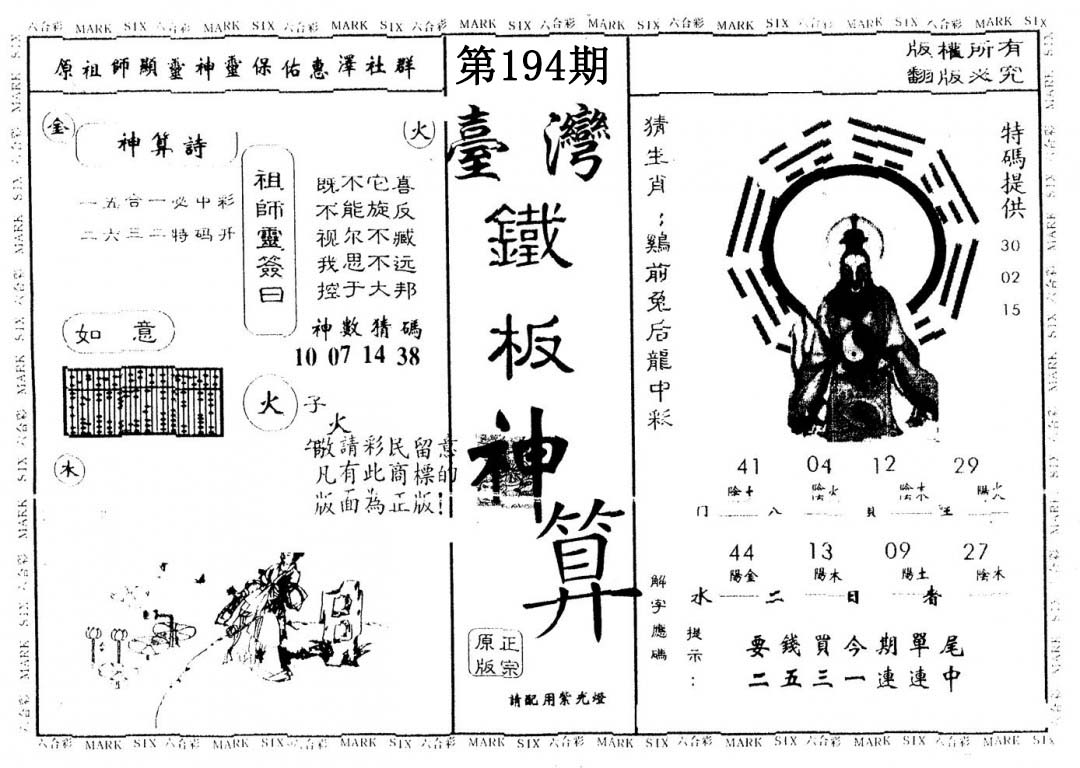 六合彩 MARK SIX 六合彩 MARK SIX 六合彩 MARK SIX 六合彩 MARK SIX 六合彩 MARK SIX 六合彩 MARK SIX 六合彩 MARK SIX 六合彩 MARK SIX
原祖師顯靈神靈保佑惠澤社群
第194期
版權所有
翻版必究
金
神算詩
火
一五合一必中彩
二六三二特码开
祖師靈簽曰
既不它喜
不能旋反
视尔不臧
我思不远
控于大邦
神數猜碼
10 07 14 38
如意
火
子
火
水
敬請彩民留意
凡有此商標的
版面為正版!
臺灣
鐵
板
神
算
正宗
原版
請配用紫光燈
猜生肖：鷄前兔后龍中彩
特碼提供
30
02
15
41 04 12 29
陰土 陰火 陰木 陽火
门 八 貝 王
44 13 09 27
陽金 陽木 陽土 陰木
水 二 日 者
解字應碼
提示：
要錢買今期單尾
二五三一連連中
六合彩 MARK SIX 六合彩 MARK SIX 六合彩 MARK SIX 六合彩 MARK SIX 六合彩 MARK SIX 六合彩 MARK SIX 六合彩 MARK SIX 六合彩 MARK SIX